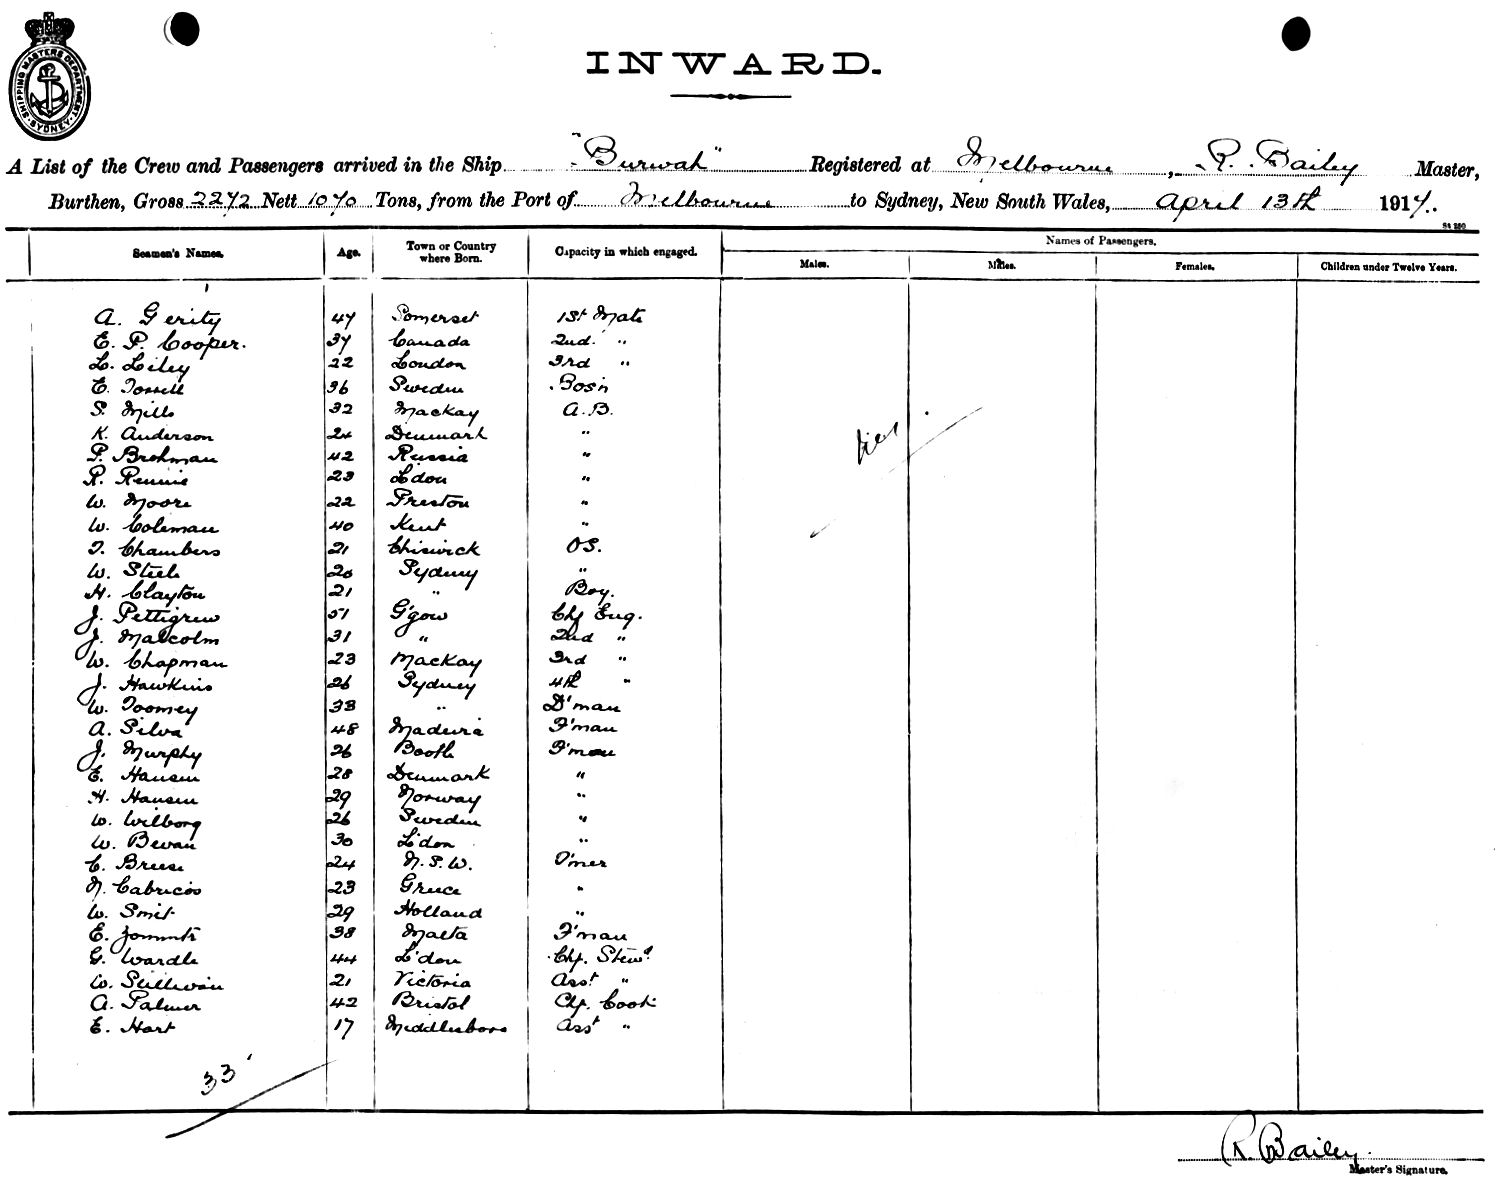 SHIPPING MASTERS DEPARTMENT SYDNEY
INWARD.
A List of the Crew and Passengers arrived in the Ship "Burwah" Registered at Melbourne, R. Bailey Master,
Burthen, Gross 2272 Nett 1070 Tons, from the Port of Melbourne to Sydney, New South Wales, April 13th 1914.
Seamen's Names. Age. Town or Country where Born. Capacity in which engaged. Names of Passengers.
Males. Males. Females. Children under Twelve Years.
A. Gerity 47 Somerset 1st Mate
E. P. Cooper. 37 Canada 2nd. "
L. Liley 22 London 3rd "
E. Torsell 36 Sweden Bos'n
S. Mills 32 Mackay A.B.
K. Anderson 24 Denmark "
P. Brehman 42 Russia "
R. Rennie 23 L'don "
W. Moore 22 Preston "
W. Coleman 40 Kent "
T. Chambers 21 Chiswick OS.
W. Steele 20 Sydney "
H. Clayton 21 " Boy.
J. Pettigrew 51 G'gow Chf Eng.
J. Malcolm 31 " 2nd "
W. Chapman 23 Mackay 3rd "
J. Hawkins 26 Sydney 4th "
W. Toomey 33 " D'man
A. Silva 48 Madeira F'man
J. Murphy 26 Bootle F'man
E. Hansen 28 Denmark "
H. Hansen 29 Norway "
W. Wilborg 26 Sweden "
W. Bevan 30 L'don "
C. Breese 24 N.S.W. T'mer
N. Cabricos 23 Greece "
W. Smit 29 Holland "
E. 38 Malta F'man
G. Wardle 44 L'don Chf. Stewd
W. Sullivan 21 Victoria Asst "
A. Palmer 42 Bristol Chf. Cook
E. Hart 17 Middlesboro Asst "
33
R. Bailey.
Master's Signature.